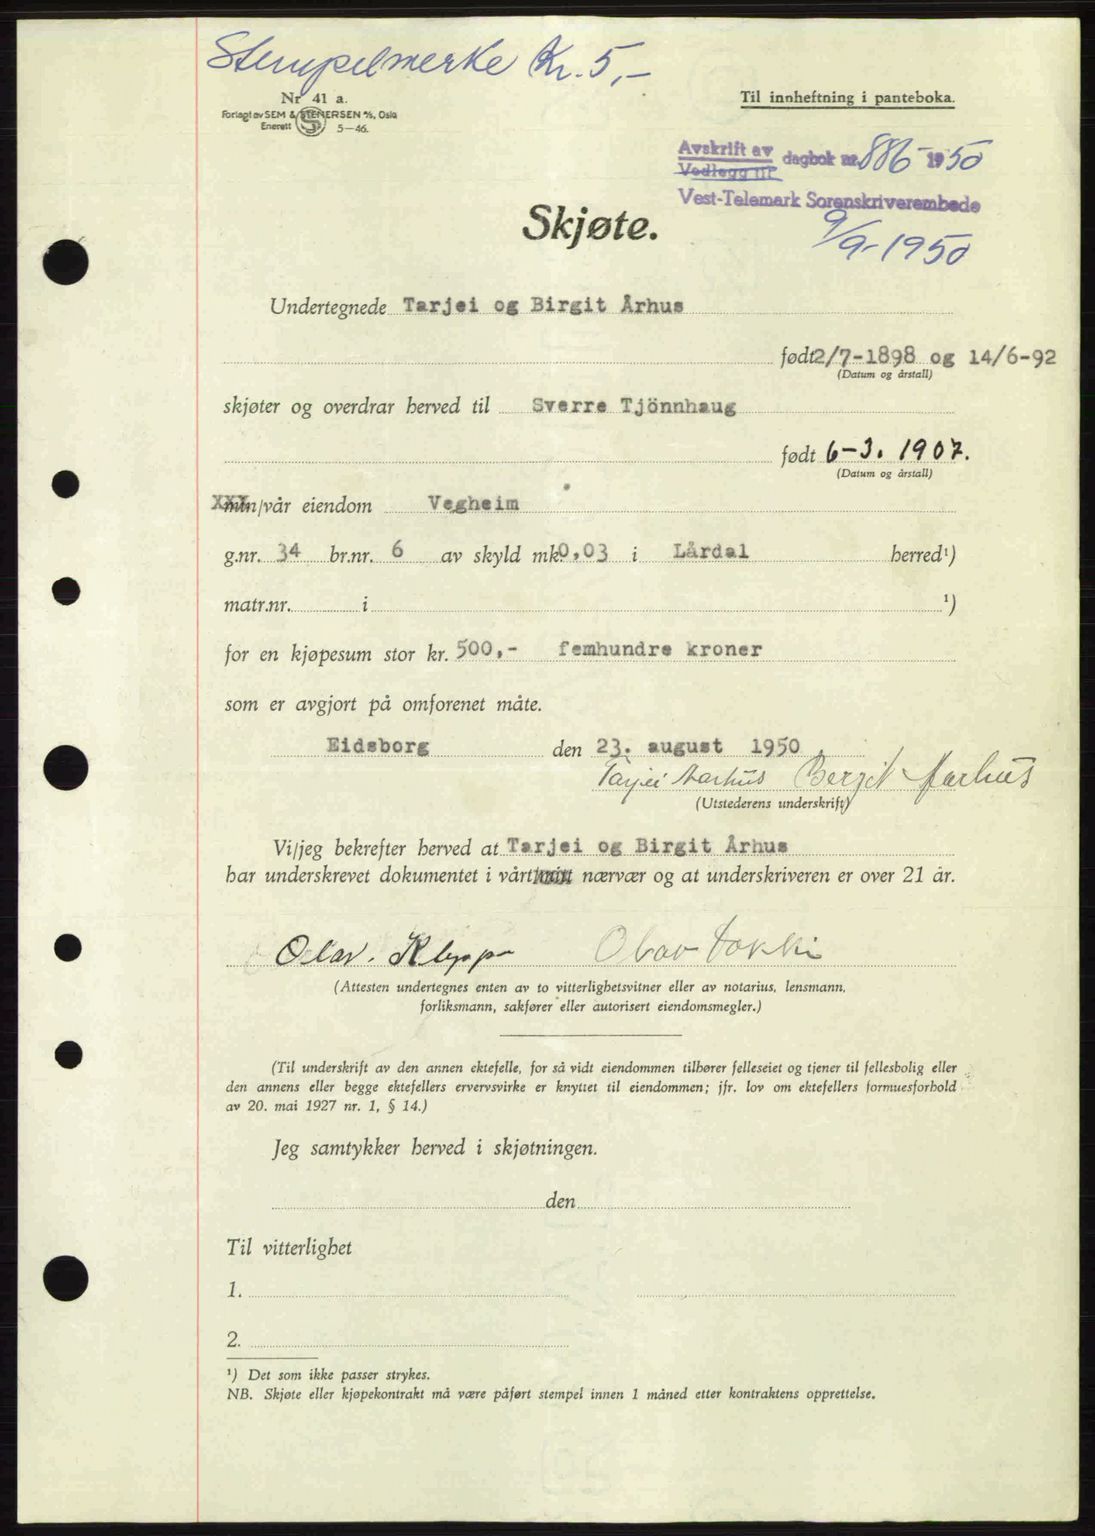 Stempelmerke Kr. 5,-
Nr 41 a.
Forlagt av SEM & STENERSEN A/S, Oslo
Enerett S 5—46.
Til innheftning i panteboka.
Avskrift av
Vedlegg til dagbok nr. 886 - 1950
Vest-Telemark Sorenskriverembede
9/9-1950
Skjøte.
Undertegnede Tarjei og Birgit Århus
født 2/7-1898 og 14/6-92
(Datum og årstall)
skjøter og overdrar herved til Sverre Tjönnhaug
født 6-3. 1907.
(Datum og årstall)
XXX min/vår eiendom Vegheim
g.nr. 34 br.nr. 6 av skyld mk. 0,03 i Lårdal herred¹)
matr.nr. i ¹)
for en kjøpesum stor kr. 500,- femhundre kroner
som er avgjort på omforenet måte.
Eidsborg den 23. august 1950
Tarjei Aarhus Bergit Aarhus
(Utstederens underskrift)
Vi/jeg bekrefter herved at Tarjei og Birgit Århus
har underskrevet dokumentet i vårt/mitt nærvær og at underskriveren er over 21 år.
Olav. Klyppe Olav Tokke
(Attesten undertegnes enten av to vitterlighetsvitner eller av notarius, lensmann,
forliksmann, sakfører eller autorisert eiendomsmegler.)
(Til underskrift av den annen ektefelle, for så vidt eiendommen tilhører felleseiet og tjener til fellesbolig eller
den annens eller begge ektefellers ervervsvirke er knyttet til eiendommen; jfr. lov om ektefellers formuesforhold
av 20. mai 1927 nr. 1, § 14.)
Jeg samtykker herved i skjøtningen.
den
Til vitterlighet
1.
2.
¹) Det som ikke passer strykes.
NB. Skjøte eller kjøpekontrakt må være påført stempel innen 1 måned etter kontraktens opprettelse.